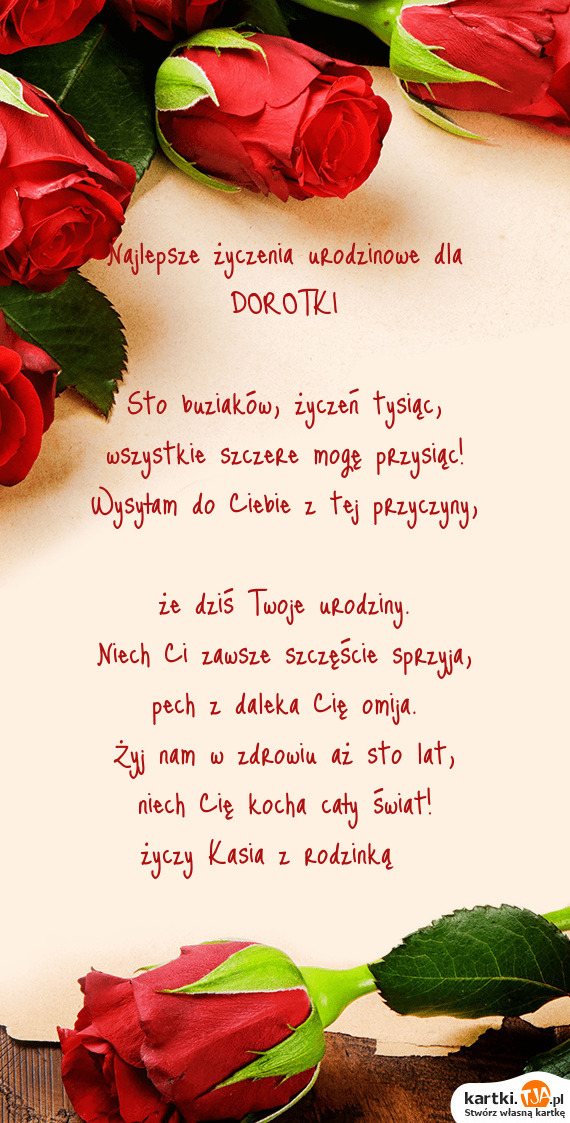 Najlepsze życzenia urodzinowe dla
DOROTKI
Sto buziaków, życzeń tysiąc,
wszystkie szczere mogę przysiąc!
Wysyłam do Ciebie z tej przyczyny,
że dziś Twoje urodziny.
Niech Ci zawsze szczęście sprzyja,
pech z daleka Cię omija.
Żyj nam w zdrowiu aż sto lat,
niech Cię kocha cały świat!
życzy Kasia z rodzinką
kartki.TJA.pl
Stwórz własną kartkę